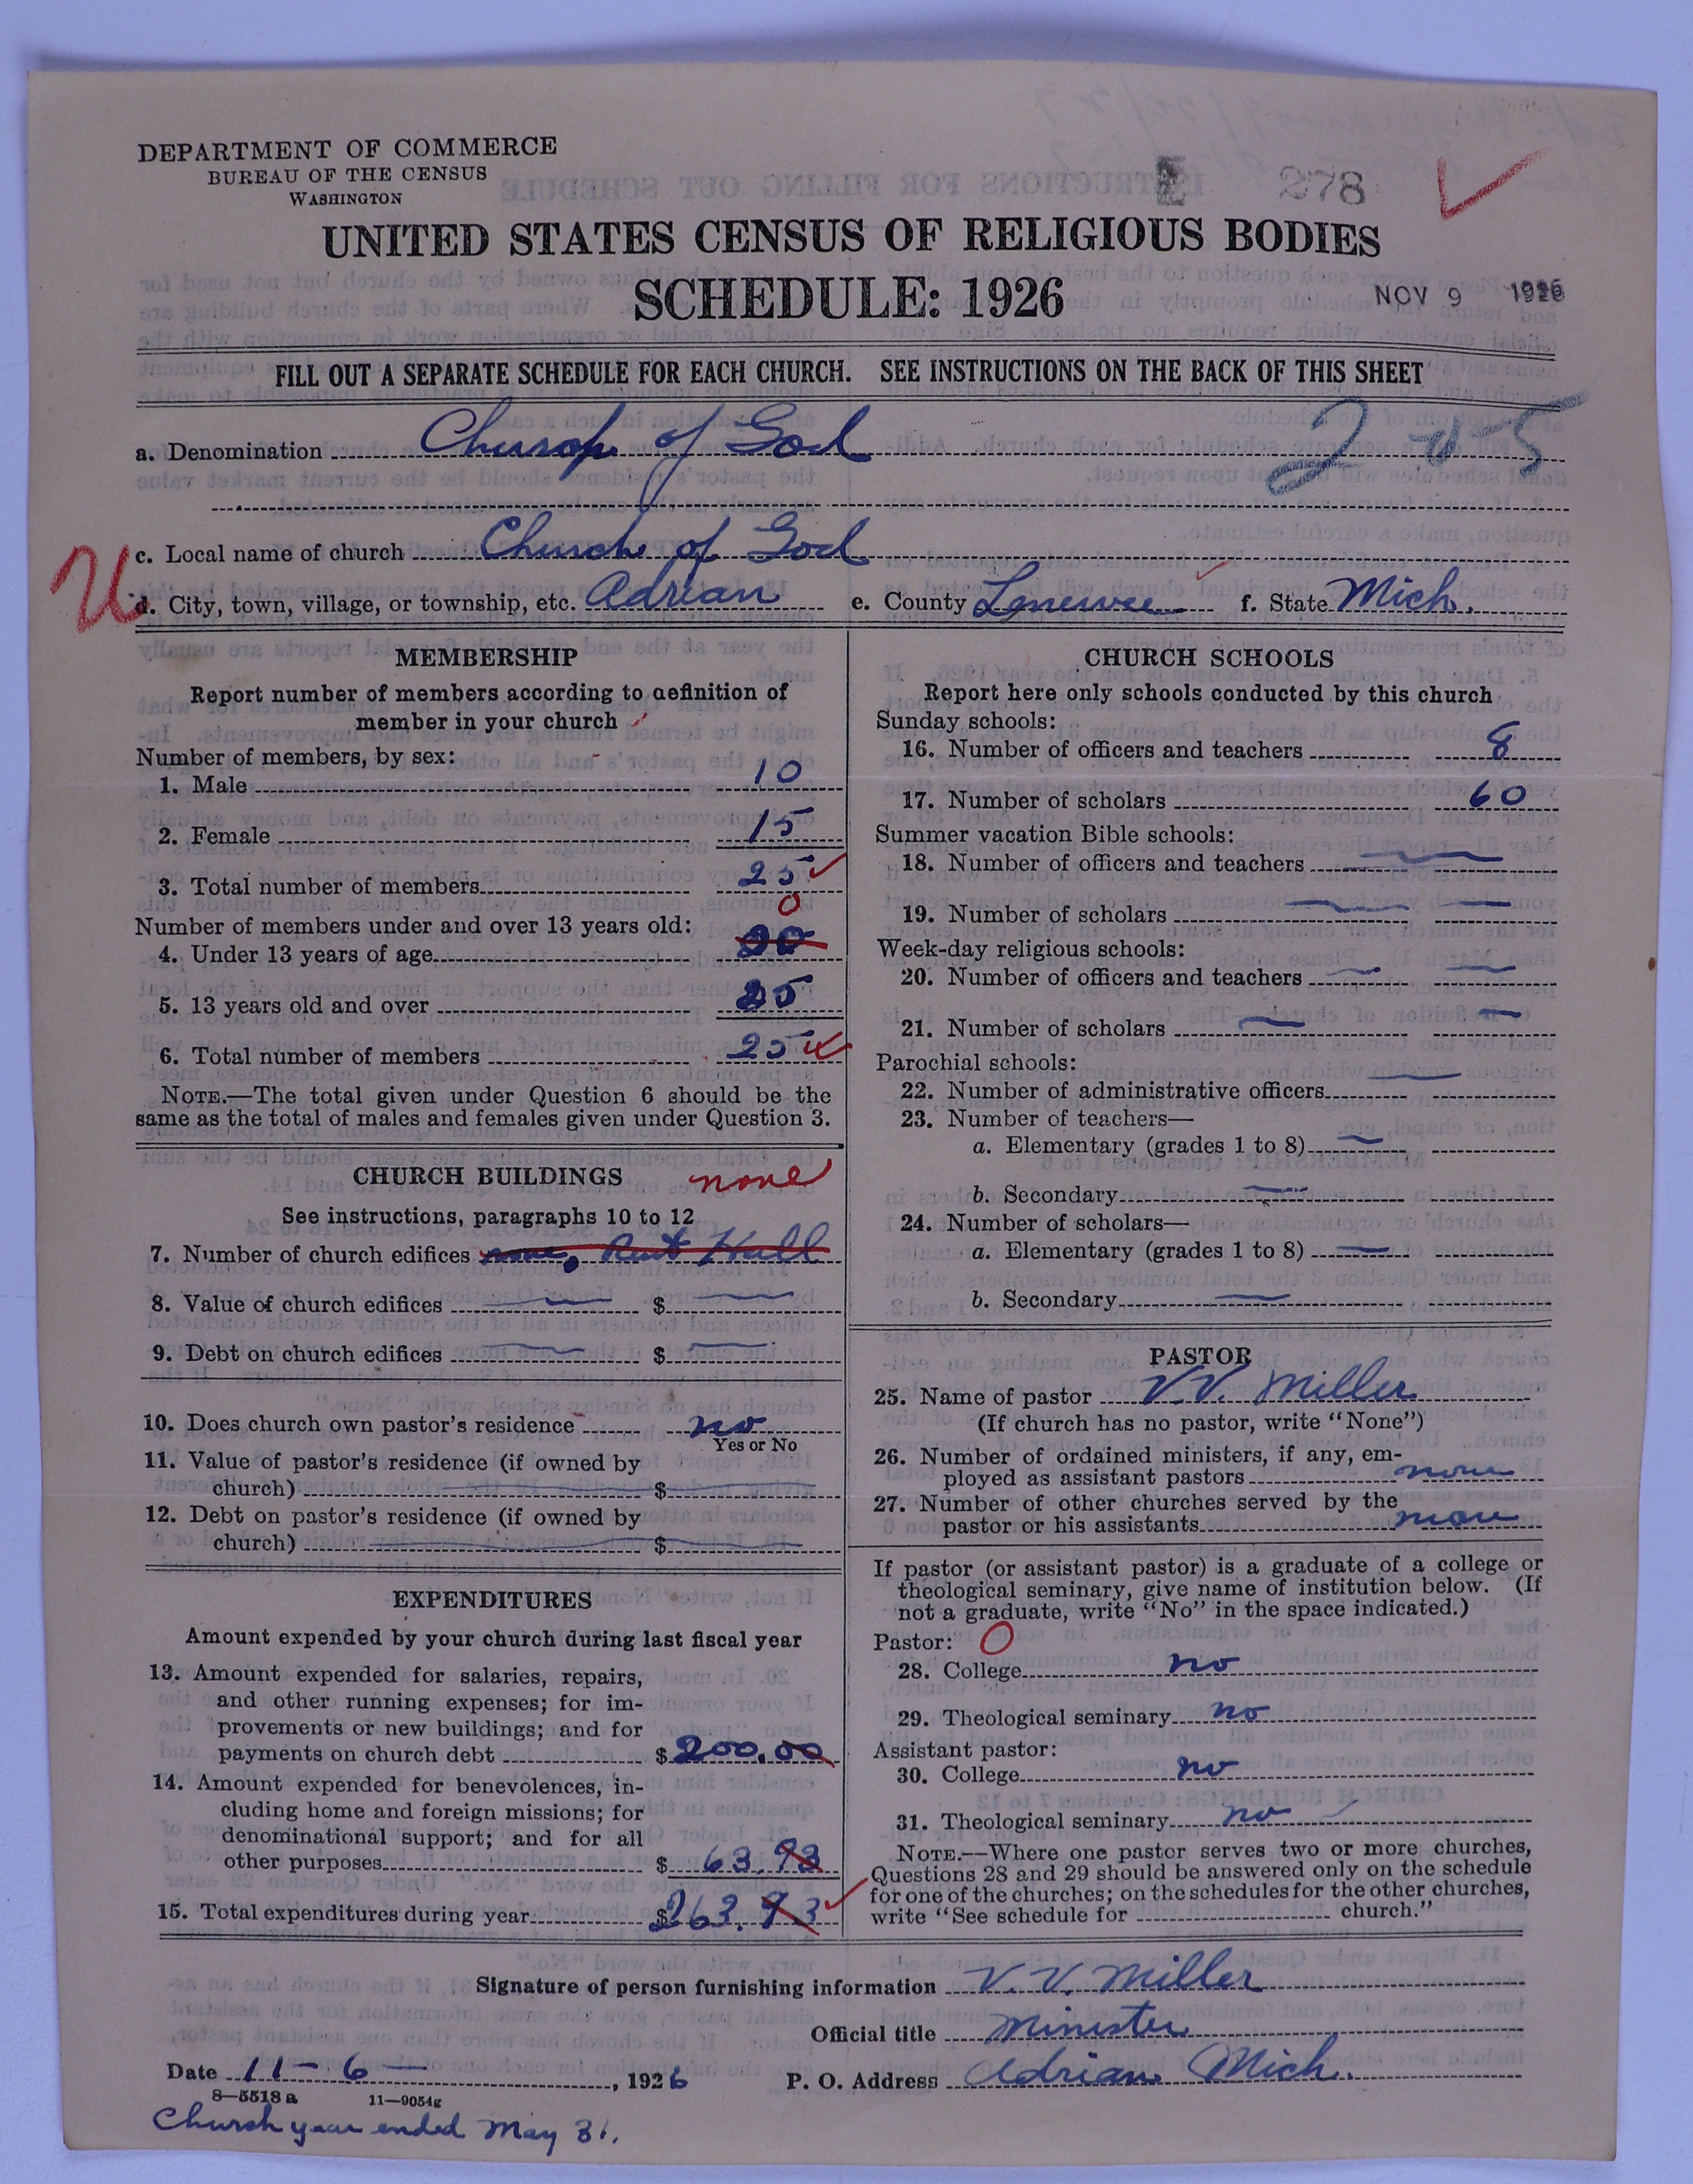 DEPARTMENT OF COMMERCE
BUREAU OF THE CENSUS
WASHINGTON
278
UNITED STATES CENSUS OF RELIGIOUS BODIES
SCHEDULE: 1926
NOV 9 1926
FILL OUT A SEPARATE SCHEDULE FOR EACH CHURCH. SEE INSTRUCTIONS ON THE BACK OF THIS SHEET
a. Denomination Church of God
c. Local name of church Church of God
U
d. City, town, village, or township, etc. Adrian e. County Lenewee f. State Mich.
MEMBERSHIP
Report number of members according to definition of
member in your church
Number of members, by sex:
1. Male 10
2. Female 15
3. Total number of members 25
0
Number of members under and over 13 years old:
4. Under 13 years of age
5. 13 years old and over 25
6. Total number of members 25
NOTE.—The total given under Question 6 should be the
same as the total of males and females given under Question 3.
CHURCH BUILDINGS none
See instructions, paragraphs 10 to 12
7. Number of church edifices none, Rent Hall
8. Value of church edifices — $ —
9. Debt on church edifices — $ —
10. Does church own pastor's residence no
Yes or No
11. Value of pastor's residence (if owned by
church) — $ —
12. Debt on pastor's residence (if owned by
church) — $ —
EXPENDITURES
Amount expended by your church during last fiscal year
13. Amount expended for salaries, repairs,
and other running expenses; for im-
provements or new buildings; and for
payments on church debt $ 200.00
14. Amount expended for benevolences, in-
cluding home and foreign missions; for
denominational support; and for all
other purposes $ 63.93
15. Total expenditures during year $ 263.93
CHURCH SCHOOLS
Report here only schools conducted by this church
Sunday schools:
16. Number of officers and teachers 8
17. Number of scholars 60
Summer vacation Bible schools:
18. Number of officers and teachers —
19. Number of scholars — —
Week-day religious schools:
20. Number of officers and teachers — —
21. Number of scholars — —
Parochial schools:
22. Number of administrative officers —
23. Number of teachers—
a. Elementary (grades 1 to 8) —
b. Secondary —
24. Number of scholars—
a. Elementary (grades 1 to 8) —
b. Secondary —
PASTOR
25. Name of pastor V. V. Miller
(If church has no pastor, write "None")
26. Number of ordained ministers, if any, em-
ployed as assistant pastors none
27. Number of other churches served by the
pastor or his assistants none
If pastor (or assistant pastor) is a graduate of a college or
theological seminary, give name of institution below. (If
not a graduate, write "No" in the space indicated.)
Pastor: 0
28. College no
29. Theological seminary no
Assistant pastor:
30. College no
31. Theological seminary no
NOTE.—Where one pastor serves two or more churches,
Questions 28 and 29 should be answered only on the schedule
for one of the churches; on the schedules for the other churches,
write "See schedule for church."
Signature of person furnishing information V. V. Miller
Official title Minister
Date 11-6-, 1926 P. O. Address Adrian Mich.
8—5518 a 11—9054g
Church year ended May 31.